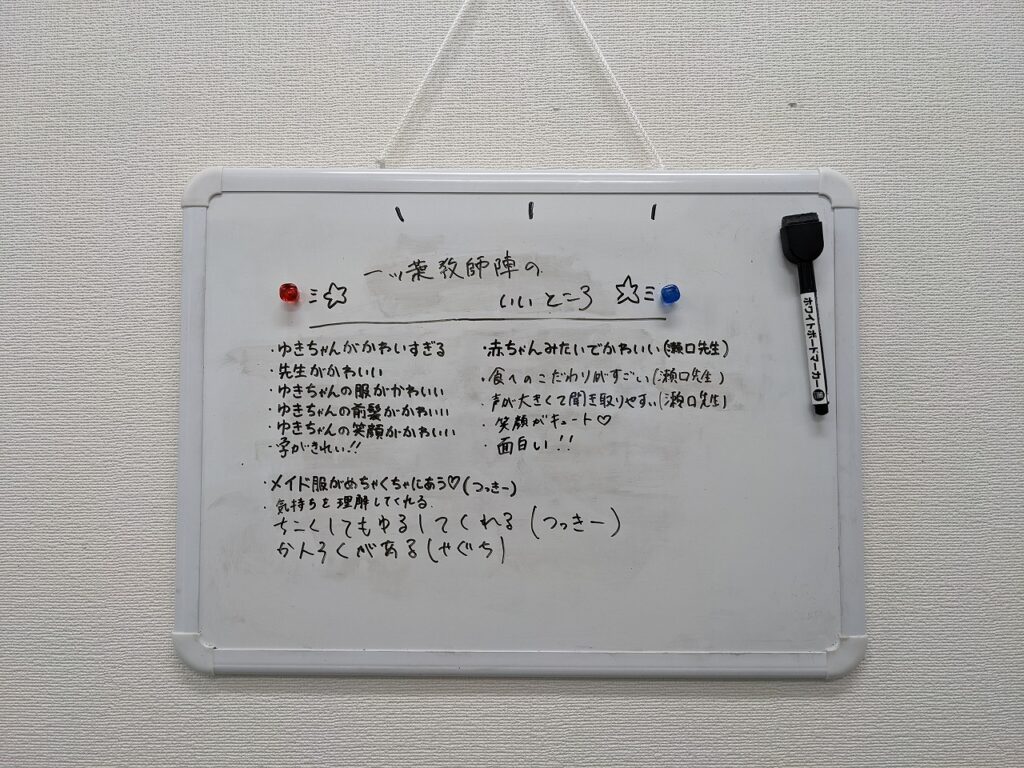 一ツ葉教師陣の
いいところ
・ゆきちゃんがかわいすぎる
・先生がかわいい
・ゆきちゃんの服がかわいい
・ゆきちゃんの前髪がかわいい
・ゆきちゃんの笑顔がかわいい
・字がきれい!!
・メイド服がめちゃくちゃにあう♡(つっきー)
・気持ちを理解してくれる
ちこくしてもゆるしてくれる(つっきー)
かんろくがある(やぐち)
・赤ちゃんみたいでかわいい(瀬口先生)
・食へのこだわりがすごい(瀬口先生)
・声が大きくて聞き取りやすい(瀬口先生)
・笑顔がキュート♡
・面白い!!
ホワイトボードマーカー